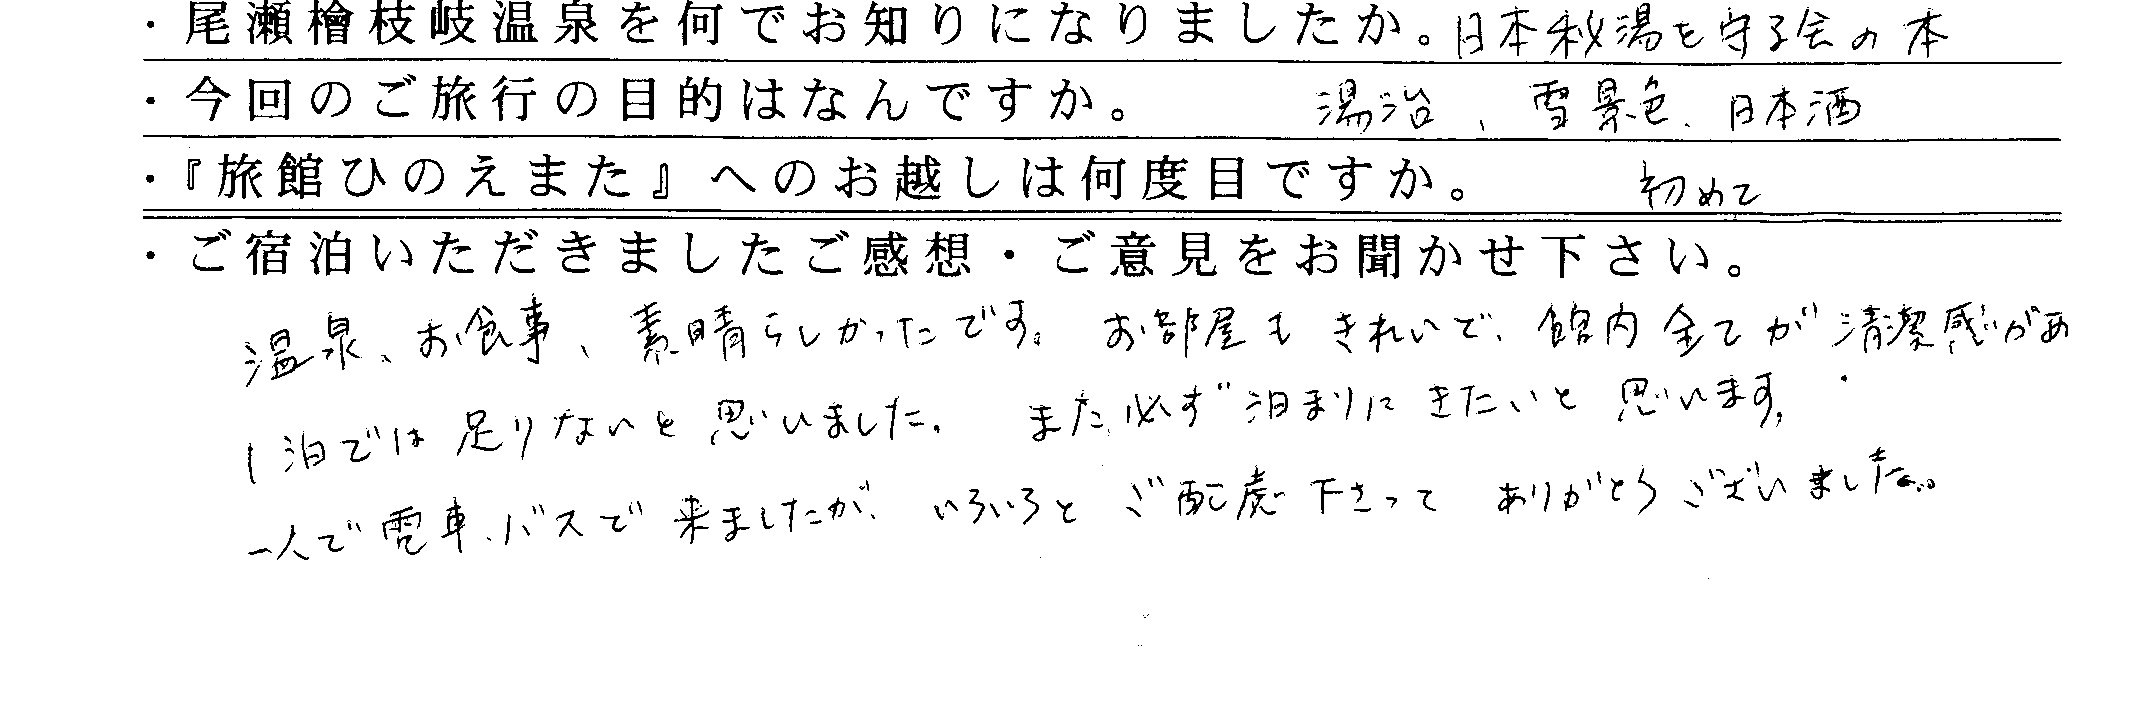 ・尾瀬檜枝岐温泉を何でお知りになりましたか。日本秘湯を守る会の本
・今回のご旅行の目的はなんですか。 湯治、雪景色、日本酒
・『旅館ひのえまた』へのお越しは何度目ですか。 初めて
・ご宿泊いただきましたご感想・ご意見をお聞かせ下さい。
温泉、お食事、素晴らしかったです。お部屋もきれいで、館内全てが清潔感があ
1泊では足りないと思いました。また必ず泊まりにきたいと思います。
一人で電車、バスで来ましたが、いろいろとご配慮下さってありがとうございました。